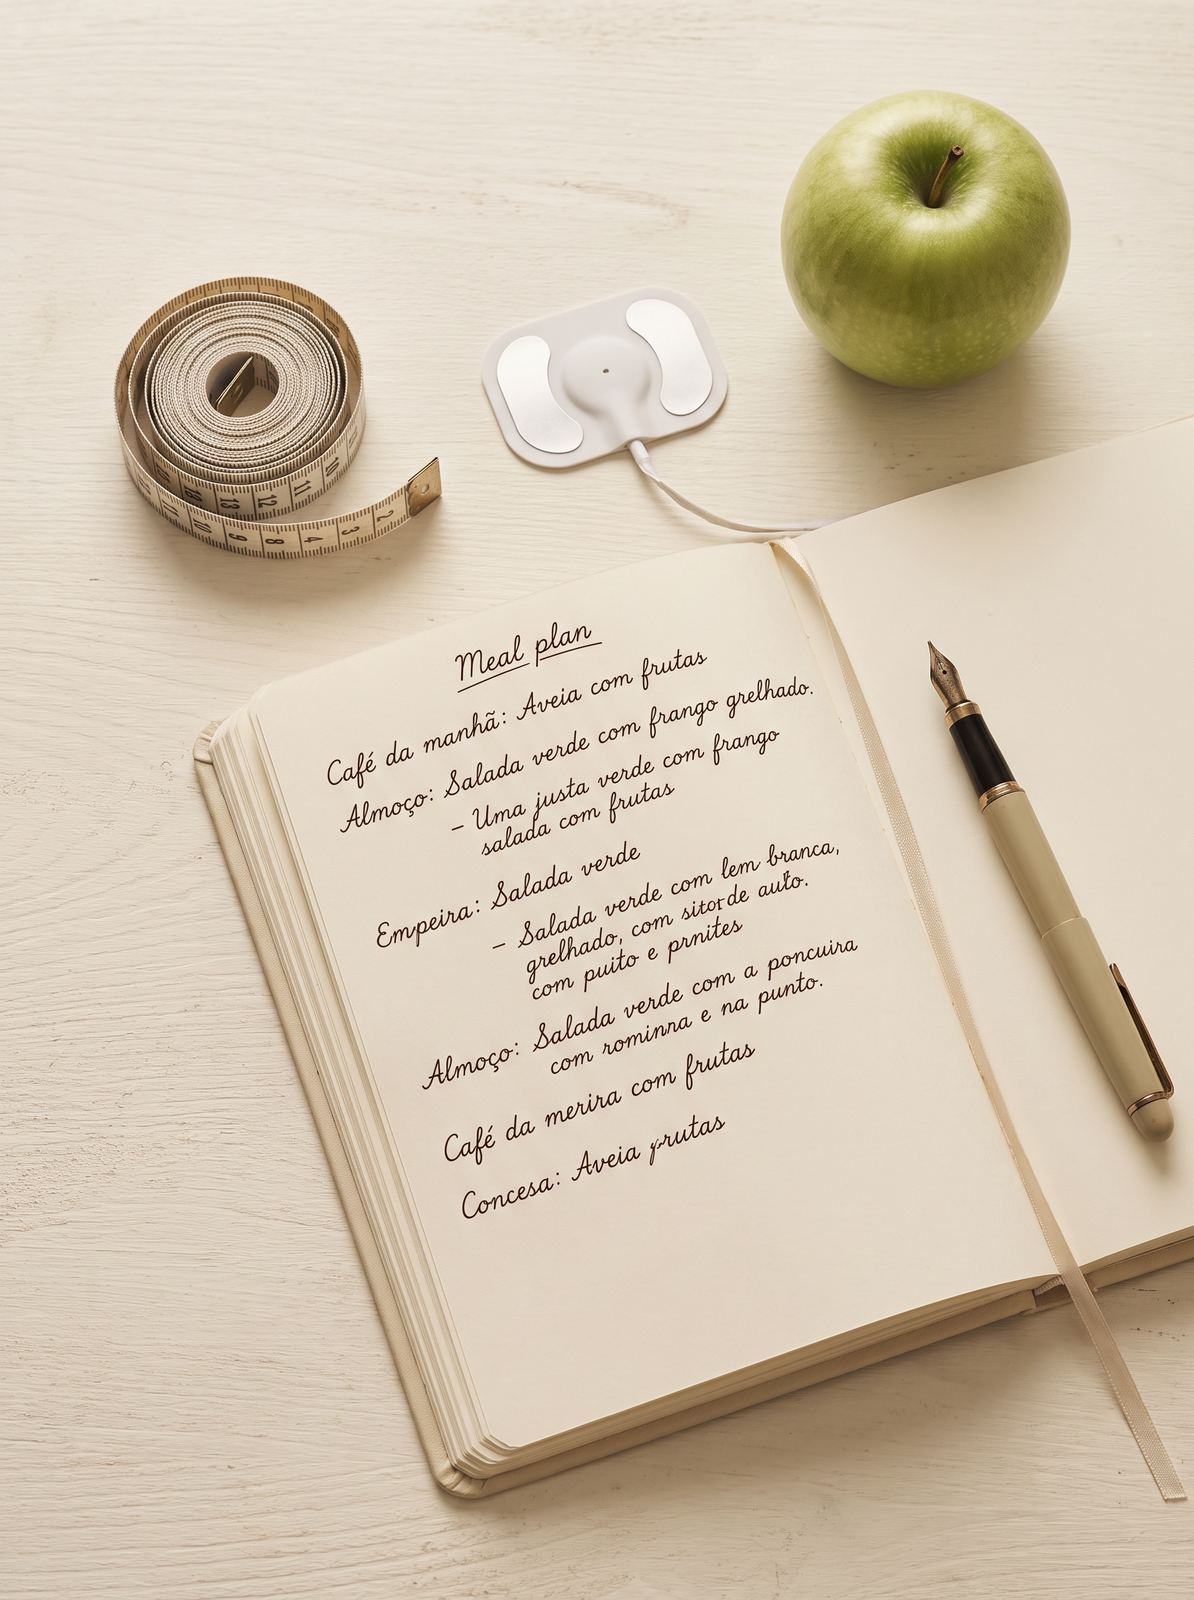 Meal plan
Café da manhã: Aveia com frutas
Almoço: Salada verde com frango grelhado.
– Uma justa verde com frango
salada com frutas
Empeira: Salada verde
– Salada verde com lem branca,
grelhado, com sitorde auto.
com puito e prnites
Almoço: Salada verde com a poncuira
com rominra e na punto.
Café da merira com frutas
Concesa: Aveia frutas
2
3
4
8
9
10
11
11
12
13
10